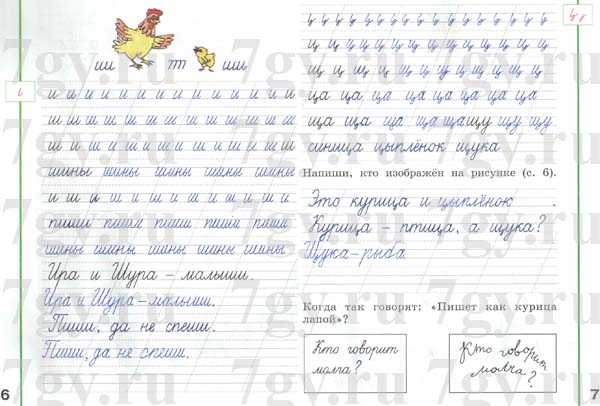 и и и и и и и и и и и и и и
ш ш ш ш ш ш ш ш ш ш ш ш
шины шины шины шины шины
и и и и и и и и и и и и
пиши пиши пиши пиши пиши
шины шины шины шины шины
Ира и Шура – малыши.
Ира и Шура – малыши.
Пиши, да не спеши.
Пиши, да не спеши.
6
ц ц ц ц ц ц ц ц ц ц ц ц ц
ц ц ц ц ц ц ц ц ц ц ц ц
щ щ щ щ щ щ щ щ щ щ щ
ца ца ца ца ца ца ца ца
ща ща ща ща щащу щу щу
синица цыплёнок щука
Напиши, кто изображён на рисунке (с. 6).
Это курица и цыплёнок .
Курица – птица, а щука?
Щука – рыба
Когда так говорят: «Пишет как курица
лапой»?
Кто говорит
молча?
Кто говорит
молча?
7
7gy.ru